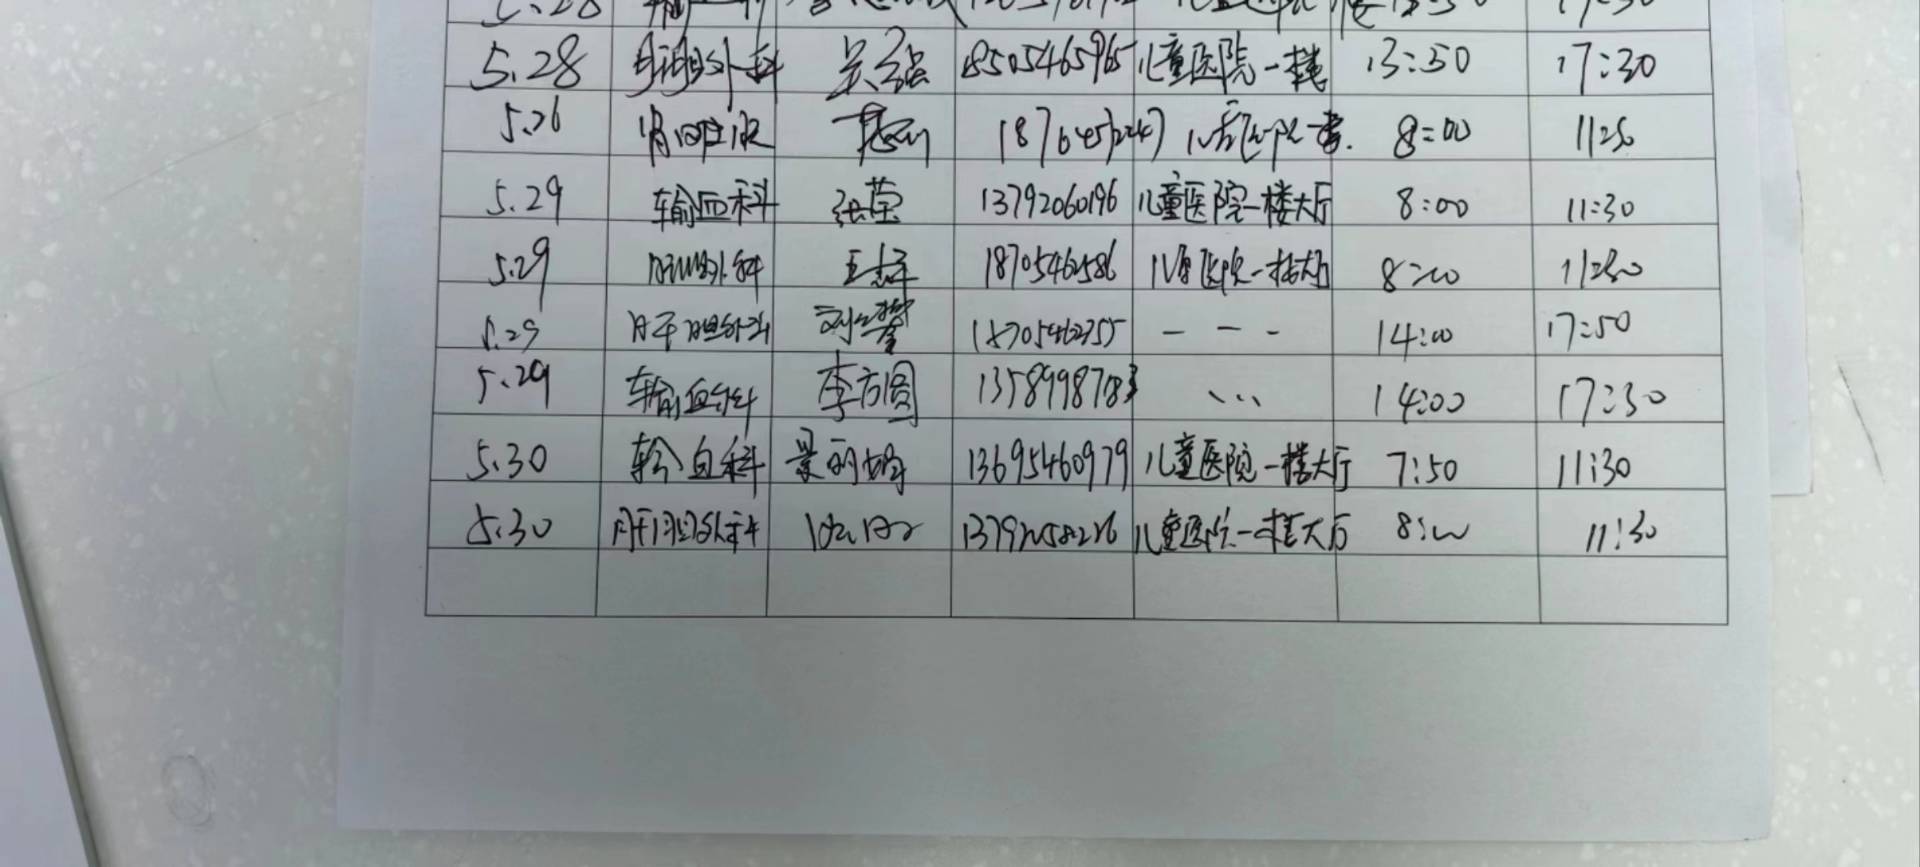 5.28
5.28 肝胆外科 吴强 18505465965 儿童医院一楼 13:50 17:30
5.26 8:00 11:30
5.29 输血科 张莹 13792060196 儿童医院一楼大厅 8:00 11:30
5.29 肝胆外科 18705462586 儿童医院一楼大厅 8:00 11:30
5.29 肝胆外科 18705462355 - - - 14:00 17:50
5.29 输血科 李方圆 13589987083 、、、 14:00 17:30
5.30 输血科 景丽娟 13695460979 儿童医院一楼大厅 7:50 11:30
5.30 肝胆外科 13792058226 儿童医院一楼大厅 8:00 11:30